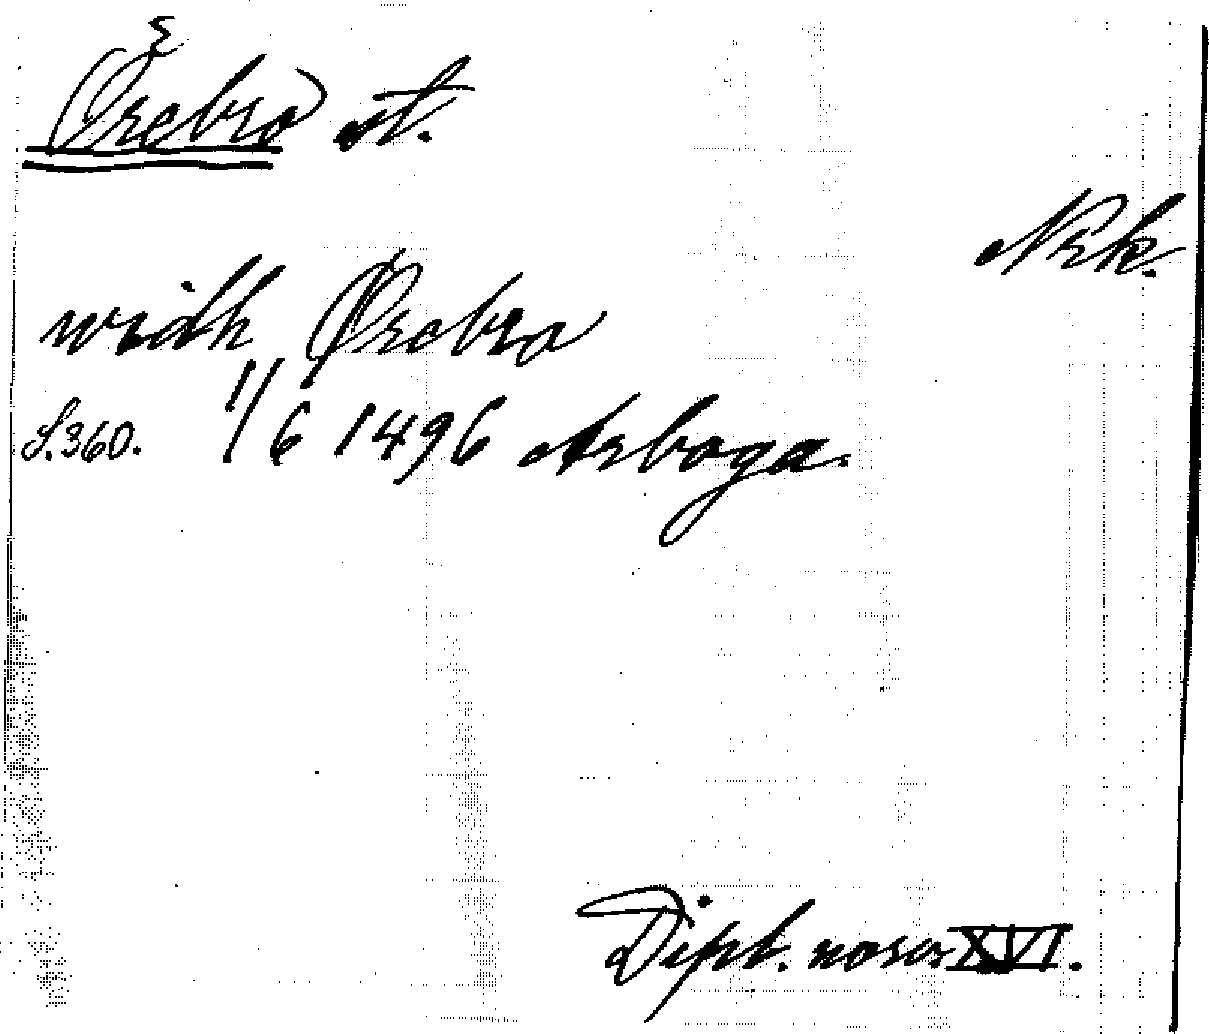 Örebro st.
Nrk.
widh Ørebro
S. 360. 1/6 1496 Arboga.
Dipl. norv. XVI.